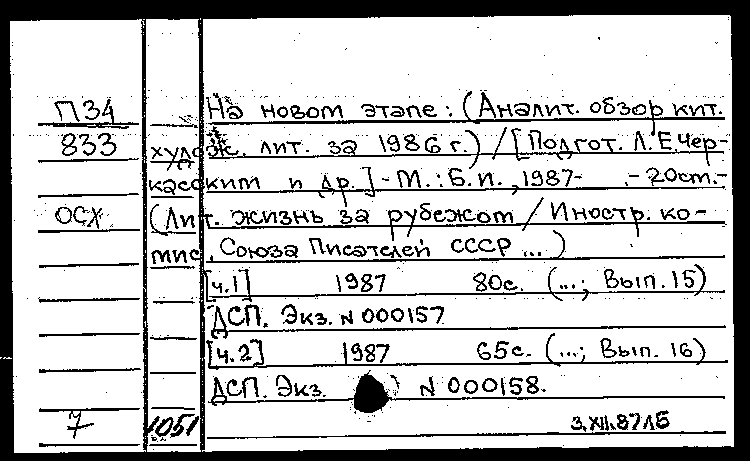 П34 На новом этапе: (Аналит. обзор кит.
833 худож. лит. за 1986 г.) / [Подгот. Л.Е.Чер-
касским и др.] - М.: Б.и., 1987- .- 20см.-
ОСХ (Лит. жизнь за рубежом / Иностр. ко-
мис. Союза Писателей СССР ...)
[ч.1] 1987 80с. (...; Вып. 15)
ДСП. Экз. N 000157
[ч.2] 1987 65с. (...; Вып. 16)
ДСП. Экз. ) N 000158.
7 1051 3.XII.87 15